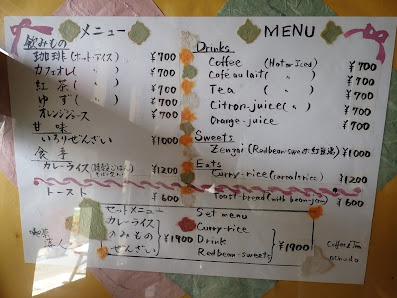 メニュー
飲みもの
珈琲(ホット・アイス) ¥700
カフェオレ( 〃 ) ¥700
紅茶( 〃 ) ¥700
ゆず( 〃 ) ¥700
オレンジジュース ¥700
甘味
いろりぜんざい ¥1000
食事
カレーライス ¥1200
トースト ¥600
セットメニュー
カレーライス
のみもの
ぜんざい
¥1900
MENU
Drinks
Coffee (Hot or Iced) ¥700
Café au lait( 〃 ) ¥700
Tea ( 〃 ) ¥700
Citron-juice( 〃 ) ¥700
Orange-juice ¥700
Sweets
Zenzai (Redbean-sweets 紅豆湯) ¥1000
Eats
Curry-rice ¥1200
Toast-bread (with bean-jam) ¥600
Set menu
Curry-rice
Drink
Redbean-sweets
¥1900
喫茶
Coffee & Tea